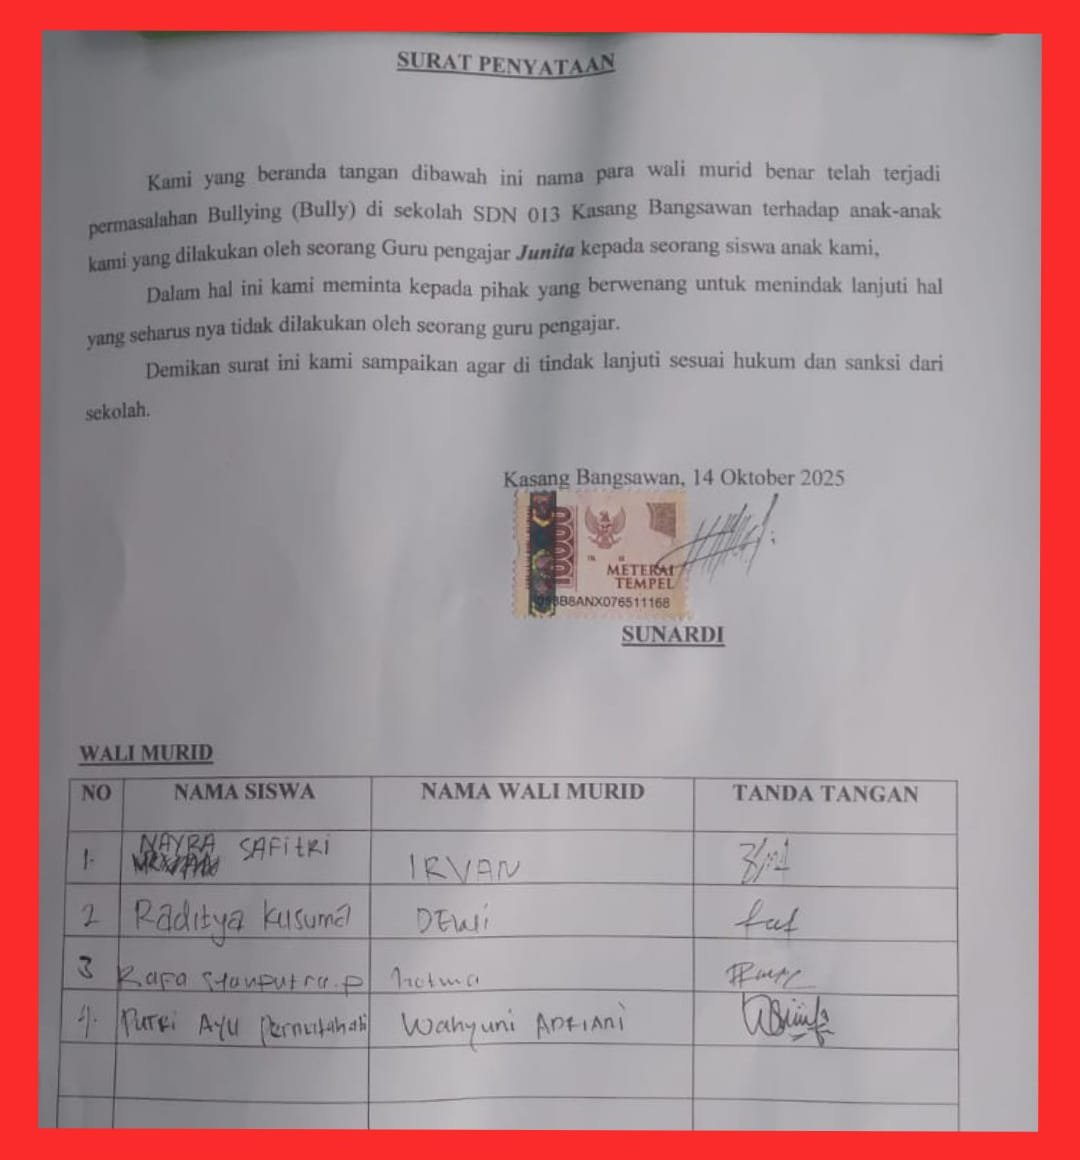 SURAT PENYATAAN
Kami yang beranda tangan dibawah ini nama para wali murid benar telah terjadi
permasalahan Bullying (Bully) di sekolah SDN 013 Kasang Bangsawan terhadap anak-anak
kami yang dilakukan oleh seorang Guru pengajar Junita kepada seorang siswa anak kami,
Dalam hal ini kami meminta kepada pihak yang berwenang untuk menindak lanjuti hal
yang seharus nya tidak dilakukan oleh seorang guru pengajar.
Demikan surat ini kami sampaikan agar di tindak lanjuti sesuai hukum dan sanksi dari
sekolah.
Kasang Bangsawan, 14 Oktober 2025
10000
METERAI
TEMPEL
B8ANX076511168
SUNARDI
WALI MURID
NO NAMA SISWA NAMA WALI MURID TANDA TANGAN
1. NAYRA SAFITRI IRVAN
2 Raditya Kusuma DEWi
3 Rafa hotma
4. PUTRI AYU Wahyuni ADRIANi